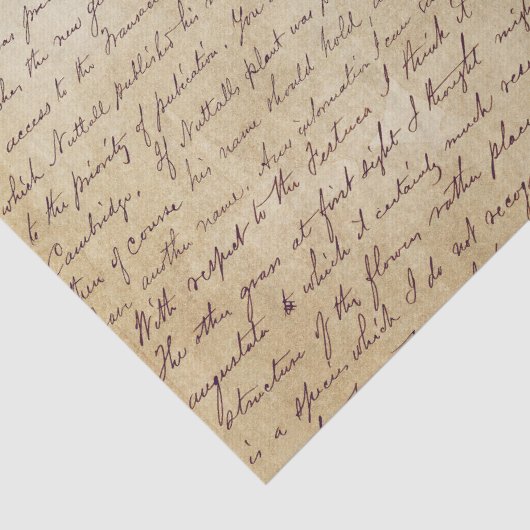 was
the new
access to the Transac
which Nuttall published his
to the priority of publication. You
Cambridge. If Nuttalls plant was
of course his name should hold,
another name. Any information I can
With respect to the Festuca I think it
The other grass at first sight I thought mig
augustata to which it certainly much rese
structure of the flowers rather plac
is a species which I do not recog